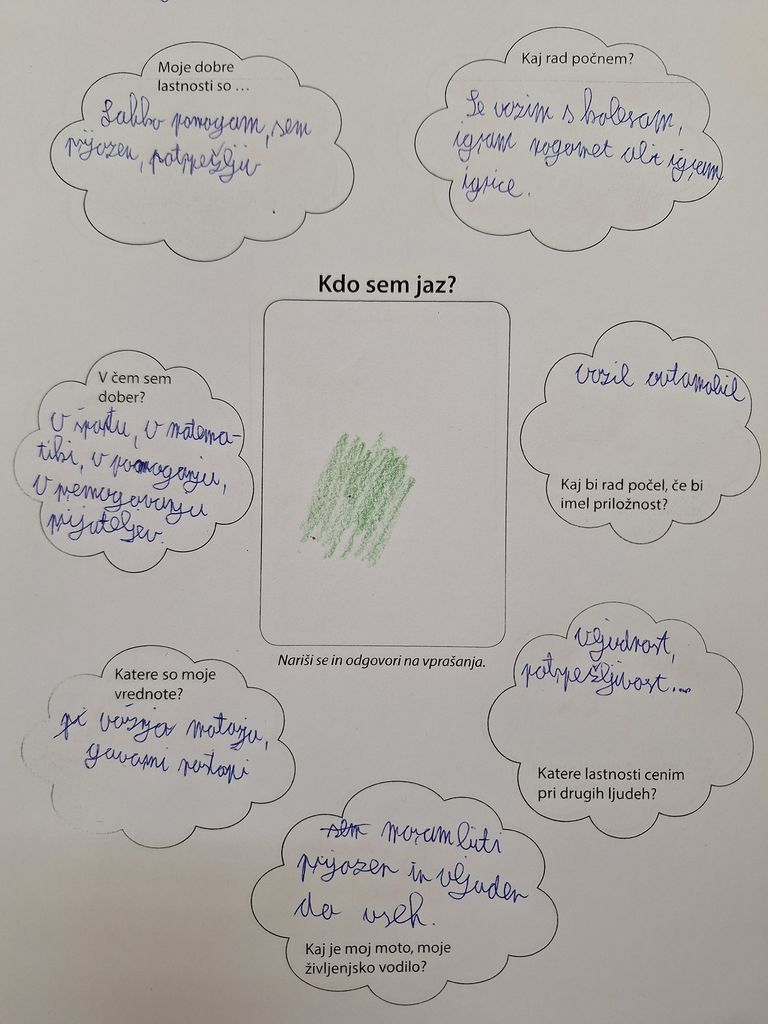 Moje dobre
lastnosti so ...
Lahko pomagam, sem
prijazen, potrpežljiv
Kaj rad počnem?
Se vozim s kolesom,
igram nogomet ali igram
igrice.
Kdo sem jaz?
V čem sem
dober?
V športu, v matema-
tiki, v pomaganju,
v premagovanju
prijateljev.
vozil avtomobil
Kaj bi rad počel, če bi
imel priložnost?
Nariši se in odgovori na vprašanja.
Katere so moje
vrednote?
vožnja
vljudnost,
potrpežljivost...
Katere lastnosti cenim
pri drugih ljudeh?
sem moram biti
prijazen in vljuden
do vseh.
Kaj je moj moto, moje
življenjsko vodilo?